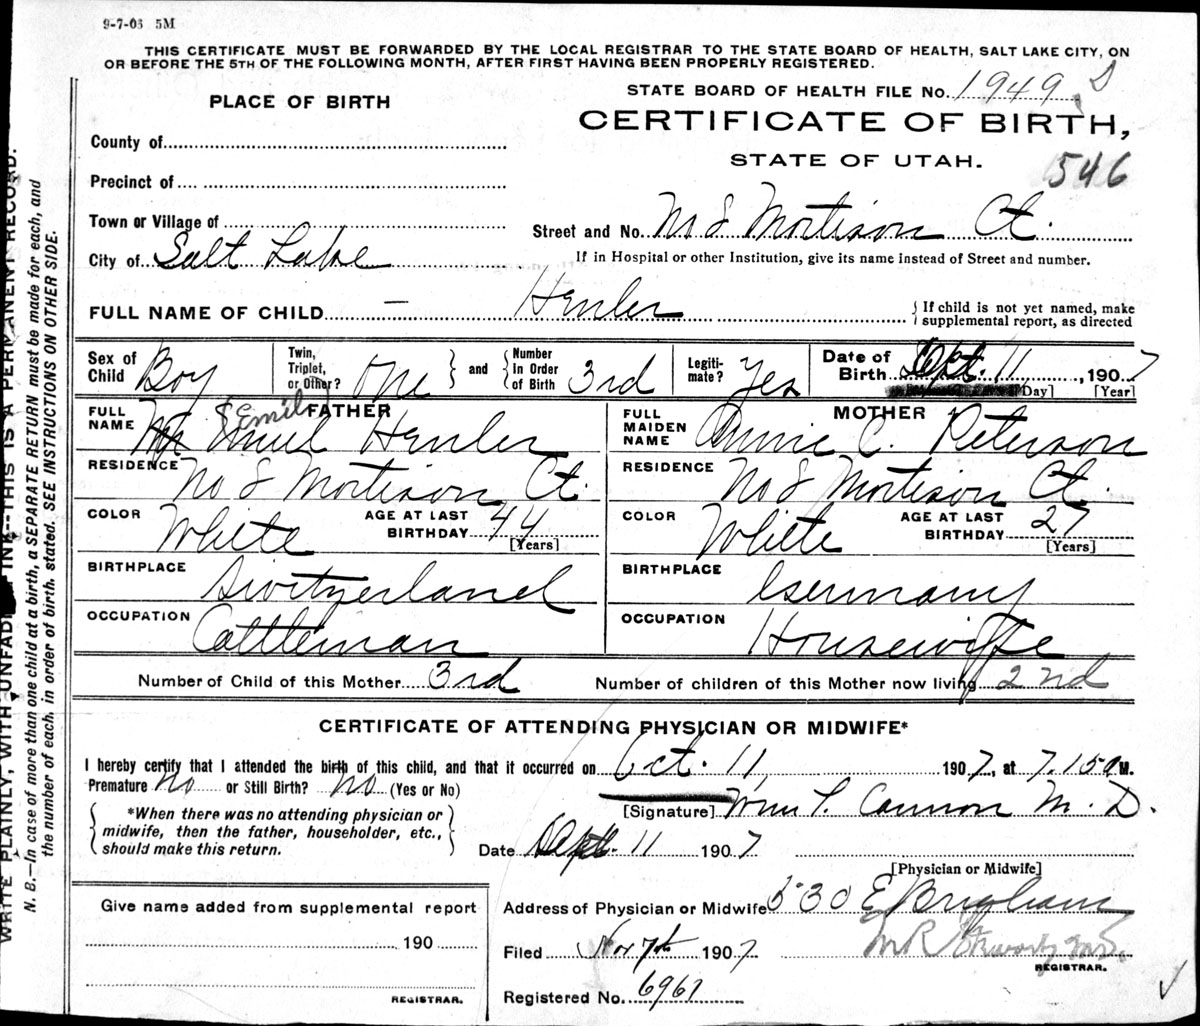 9-7-06 5M
THIS CERTIFICATE MUST BE FORWARDED BY THE LOCAL REGISTRAR TO THE STATE BOARD OF HEALTH, SALT LAKE CITY, ON
OR BEFORE THE 5TH OF THE FOLLOWING MONTH, AFTER FIRST HAVING BEEN PROPERLY REGISTERED.
PLACE OF BIRTH
STATE BOARD OF HEALTH FILE No. 1949 S
CERTIFICATE OF BIRTH,
STATE OF UTAH.
546
County of
Precinct of
Town or Village of
Street and No. No 8 Mortison Ct.
City of Salt Lake
If in Hospital or other Institution, give its name instead of Street and number.
FULL NAME OF CHILD — Henler
{ If child is not yet named, make
supplemental report, as directed
Sex of Child Boy
Twin, Triplet, or Other? One } and { Number In Order of Birth 3rd
Legitimate? Yes
Date of Birth Sept. 11, 1907
Day] [Year]
FATHER
FULL NAME Emuel {Emil} Henler
RESIDENCE No 8 Mortison Ct.
COLOR White
AGE AT LAST BIRTHDAY 44 [Years]
BIRTHPLACE Switzerland
OCCUPATION Cattleman
MOTHER
FULL MAIDEN NAME Annie C. Peterson
RESIDENCE No 8 Mortison Ct.
COLOR White
AGE AT LAST BIRTHDAY 27 [Years]
BIRTHPLACE Germany
OCCUPATION Housewife
Number of Child of this Mother 3rd Number of children of this Mother now living 2nd
CERTIFICATE OF ATTENDING PHYSICIAN OR MIDWIFE*
I hereby certify that I attended the birth of this child, and that it occurred on Oct. 11, 1907, at 7.15 a M.
Premature No or Still Birth? No (Yes or No)
[Signature] Wm T. Cannon M. D.
{ *When there was no attending physician or
midwife, then the father, householder, etc.,
should make this return. }
Date Sept. 11 1907
[Physician or Midwife]
Give name added from supplemental report
190
REGISTRAR.
Address of Physician or Midwife 530 E Brigham
Filed Nov 7th 1907
REGISTRAR.
Registered No. 6961
WRITE PLAINLY, WITH UNFADING INK--THIS IS A PERMANENT RECORD.
N. B.—In case of more than one child at a birth, a SEPARATE RETURN must be made for each, and
the number of each, in order of birth, stated. SEE INSTRUCTIONS ON OTHER SIDE.